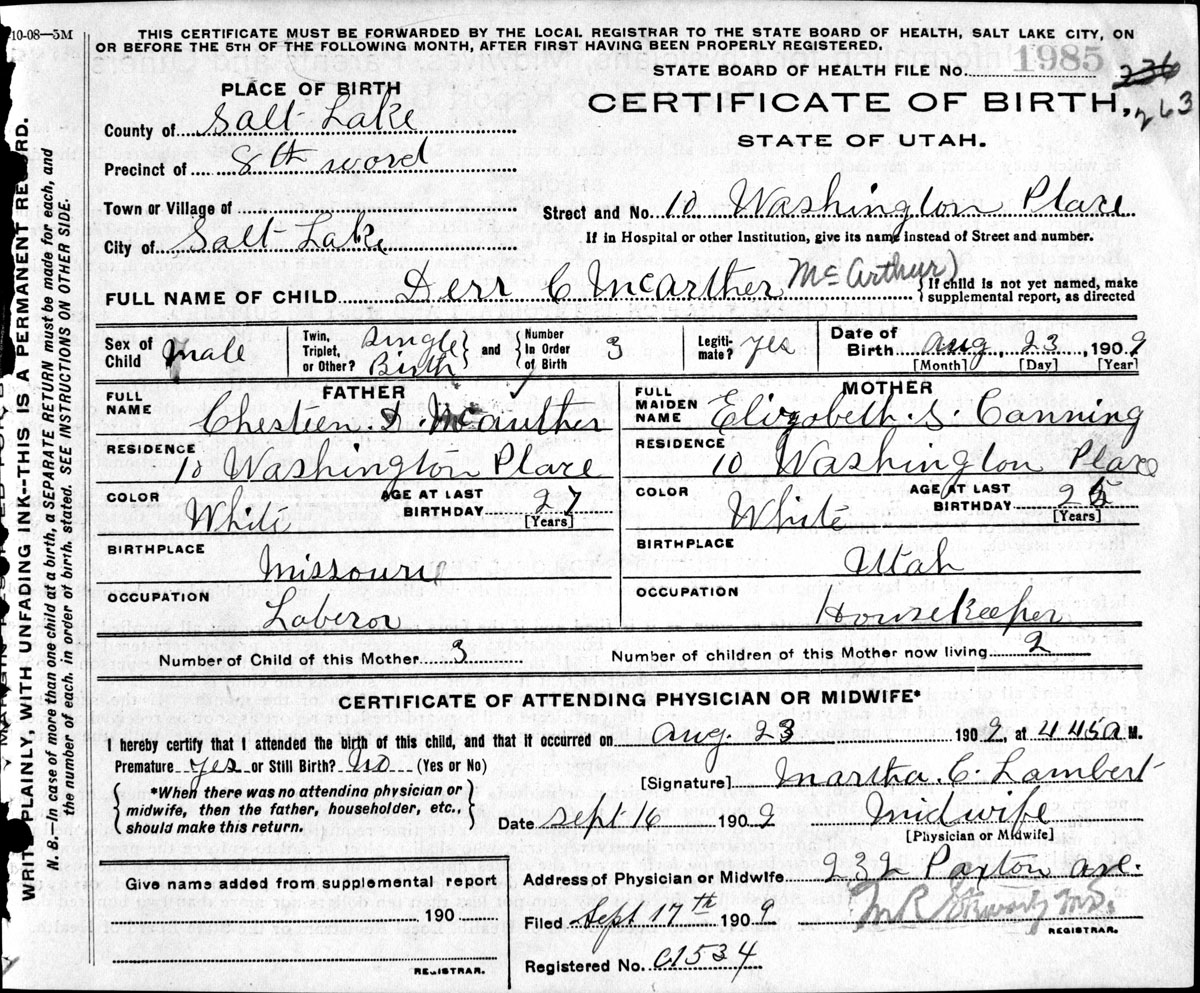 10-08—5M
THIS CERTIFICATE MUST BE FORWARDED BY THE LOCAL REGISTRAR TO THE STATE BOARD OF HEALTH, SALT LAKE CITY, ON
OR BEFORE THE 5TH OF THE FOLLOWING MONTH, AFTER FIRST HAVING BEEN PROPERLY REGISTERED.
STATE BOARD OF HEALTH FILE No. 1985 236
263
PLACE OF BIRTH
CERTIFICATE OF BIRTH,
STATE OF UTAH.
County of Salt Lake
Precinct of 8th word
Town or Village of
Street and No. 10 Washington Place
City of Salt Lake
If in Hospital or other Institution, give its name instead of Street and number.
FULL NAME OF CHILD Derr C McArther McArthur) { If child is not yet named, make
supplemental report, as directed
Sex of Child Male
Twin, Triplet, or Other? Single Birth and Number In Order of Birth 3
Legitimate? yes
Date of Birth Aug, 23, 1909
[Month] [Day] [Year]
FATHER
FULL NAME Chestien. D. McAuther
RESIDENCE 10 Washington Place
COLOR White AGE AT LAST BIRTHDAY 27 [Years]
BIRTHPLACE Missouri
OCCUPATION Laberor
MOTHER
FULL MAIDEN NAME Elizobeth. S. Canning
RESIDENCE 10 Washington Place
COLOR White AGE AT LAST BIRTHDAY 25 [Years]
BIRTHPLACE Utah
OCCUPATION Housekeeper
Number of Child of this Mother 3 Number of children of this Mother now living 2
CERTIFICATE OF ATTENDING PHYSICIAN OR MIDWIFE*
I hereby certify that I attended the birth of this child, and that it occurred on Aug. 23 1909, at 4 45 a M.
Premature yes or Still Birth? No (Yes or No)
[Signature] Martha. C. Lambert
{ *When there was no attending physician or
midwife, then the father, householder, etc.,
should make this return. }
Date Sept 16 1909 Midwife
[Physician or Midwife]
Give name added from supplemental report
190
REGISTRAR.
Address of Physician or Midwife 232 Paxton ave.
Filed Sept 17th 1909 M.D.
REGISTRAR.
Registered No. C1534
WRITE PLAINLY, WITH UNFADING INK--THIS IS A PERMANENT RECORD.
N. B.—In case of more than one child at a birth, a SEPARATE RETURN must be made for each, and
the number of each. in order of birth. stated. SEE INSTRUCTIONS ON OTHER SIDE.